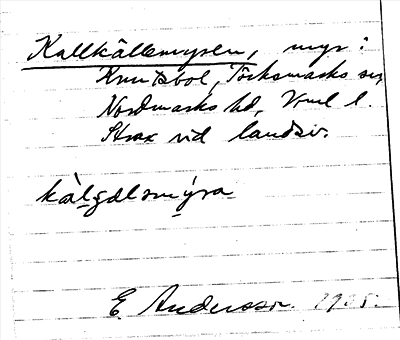 Kallkällemyren, myr i
Knutsbol, Töcksmarks sn,
Nordmarks hd, Vrml l.
Strax vid landsv.
E. Andersson.